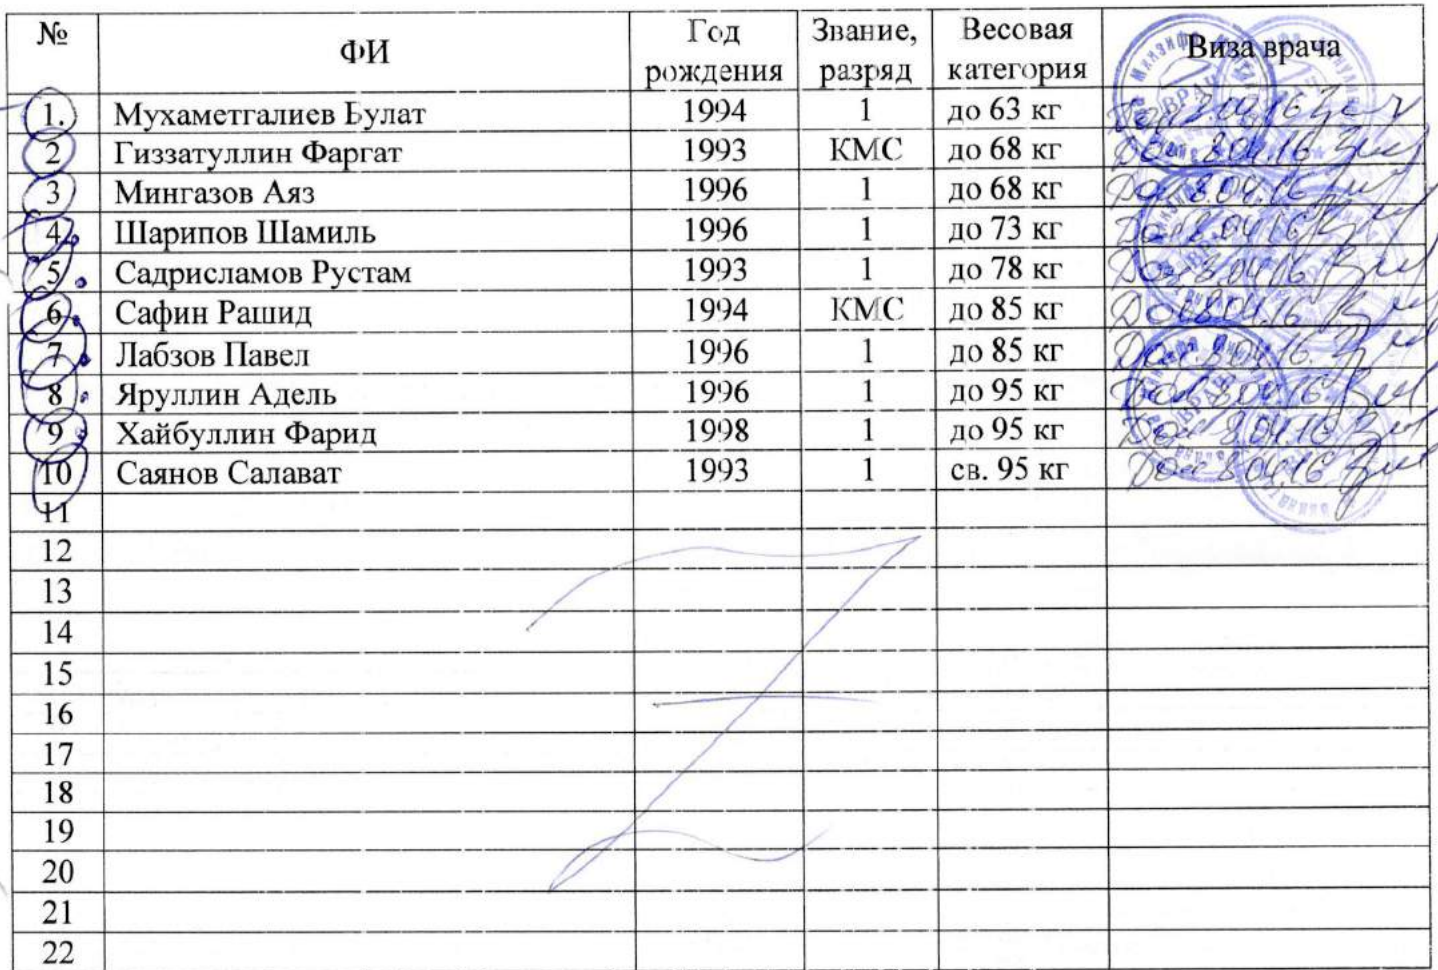 № ФИ Год рождения Звание, разряд Весовая категория Виза врача
1. Мухаметгалиев Булат 1994 1 до 63 кг
2 Гиззатуллин Фаргат 1993 КМС до 68 кг
3 Мингазов Аяз 1996 1 до 68 кг
4 Шарипов Шамиль 1996 1 до 73 кг
5 Садрисламов Рустам 1993 1 до 78 кг
6 Сафин Рашид 1994 КМС до 85 кг
7 Лабзов Павел 1996 1 до 85 кг
8 Яруллин Адель 1996 1 до 95 кг
9 Хайбуллин Фарид 1998 1 до 95 кг
10 Саянов Салават 1993 1 св. 95 кг
11
12
13
14
15
16
17
18
19
20
21
22